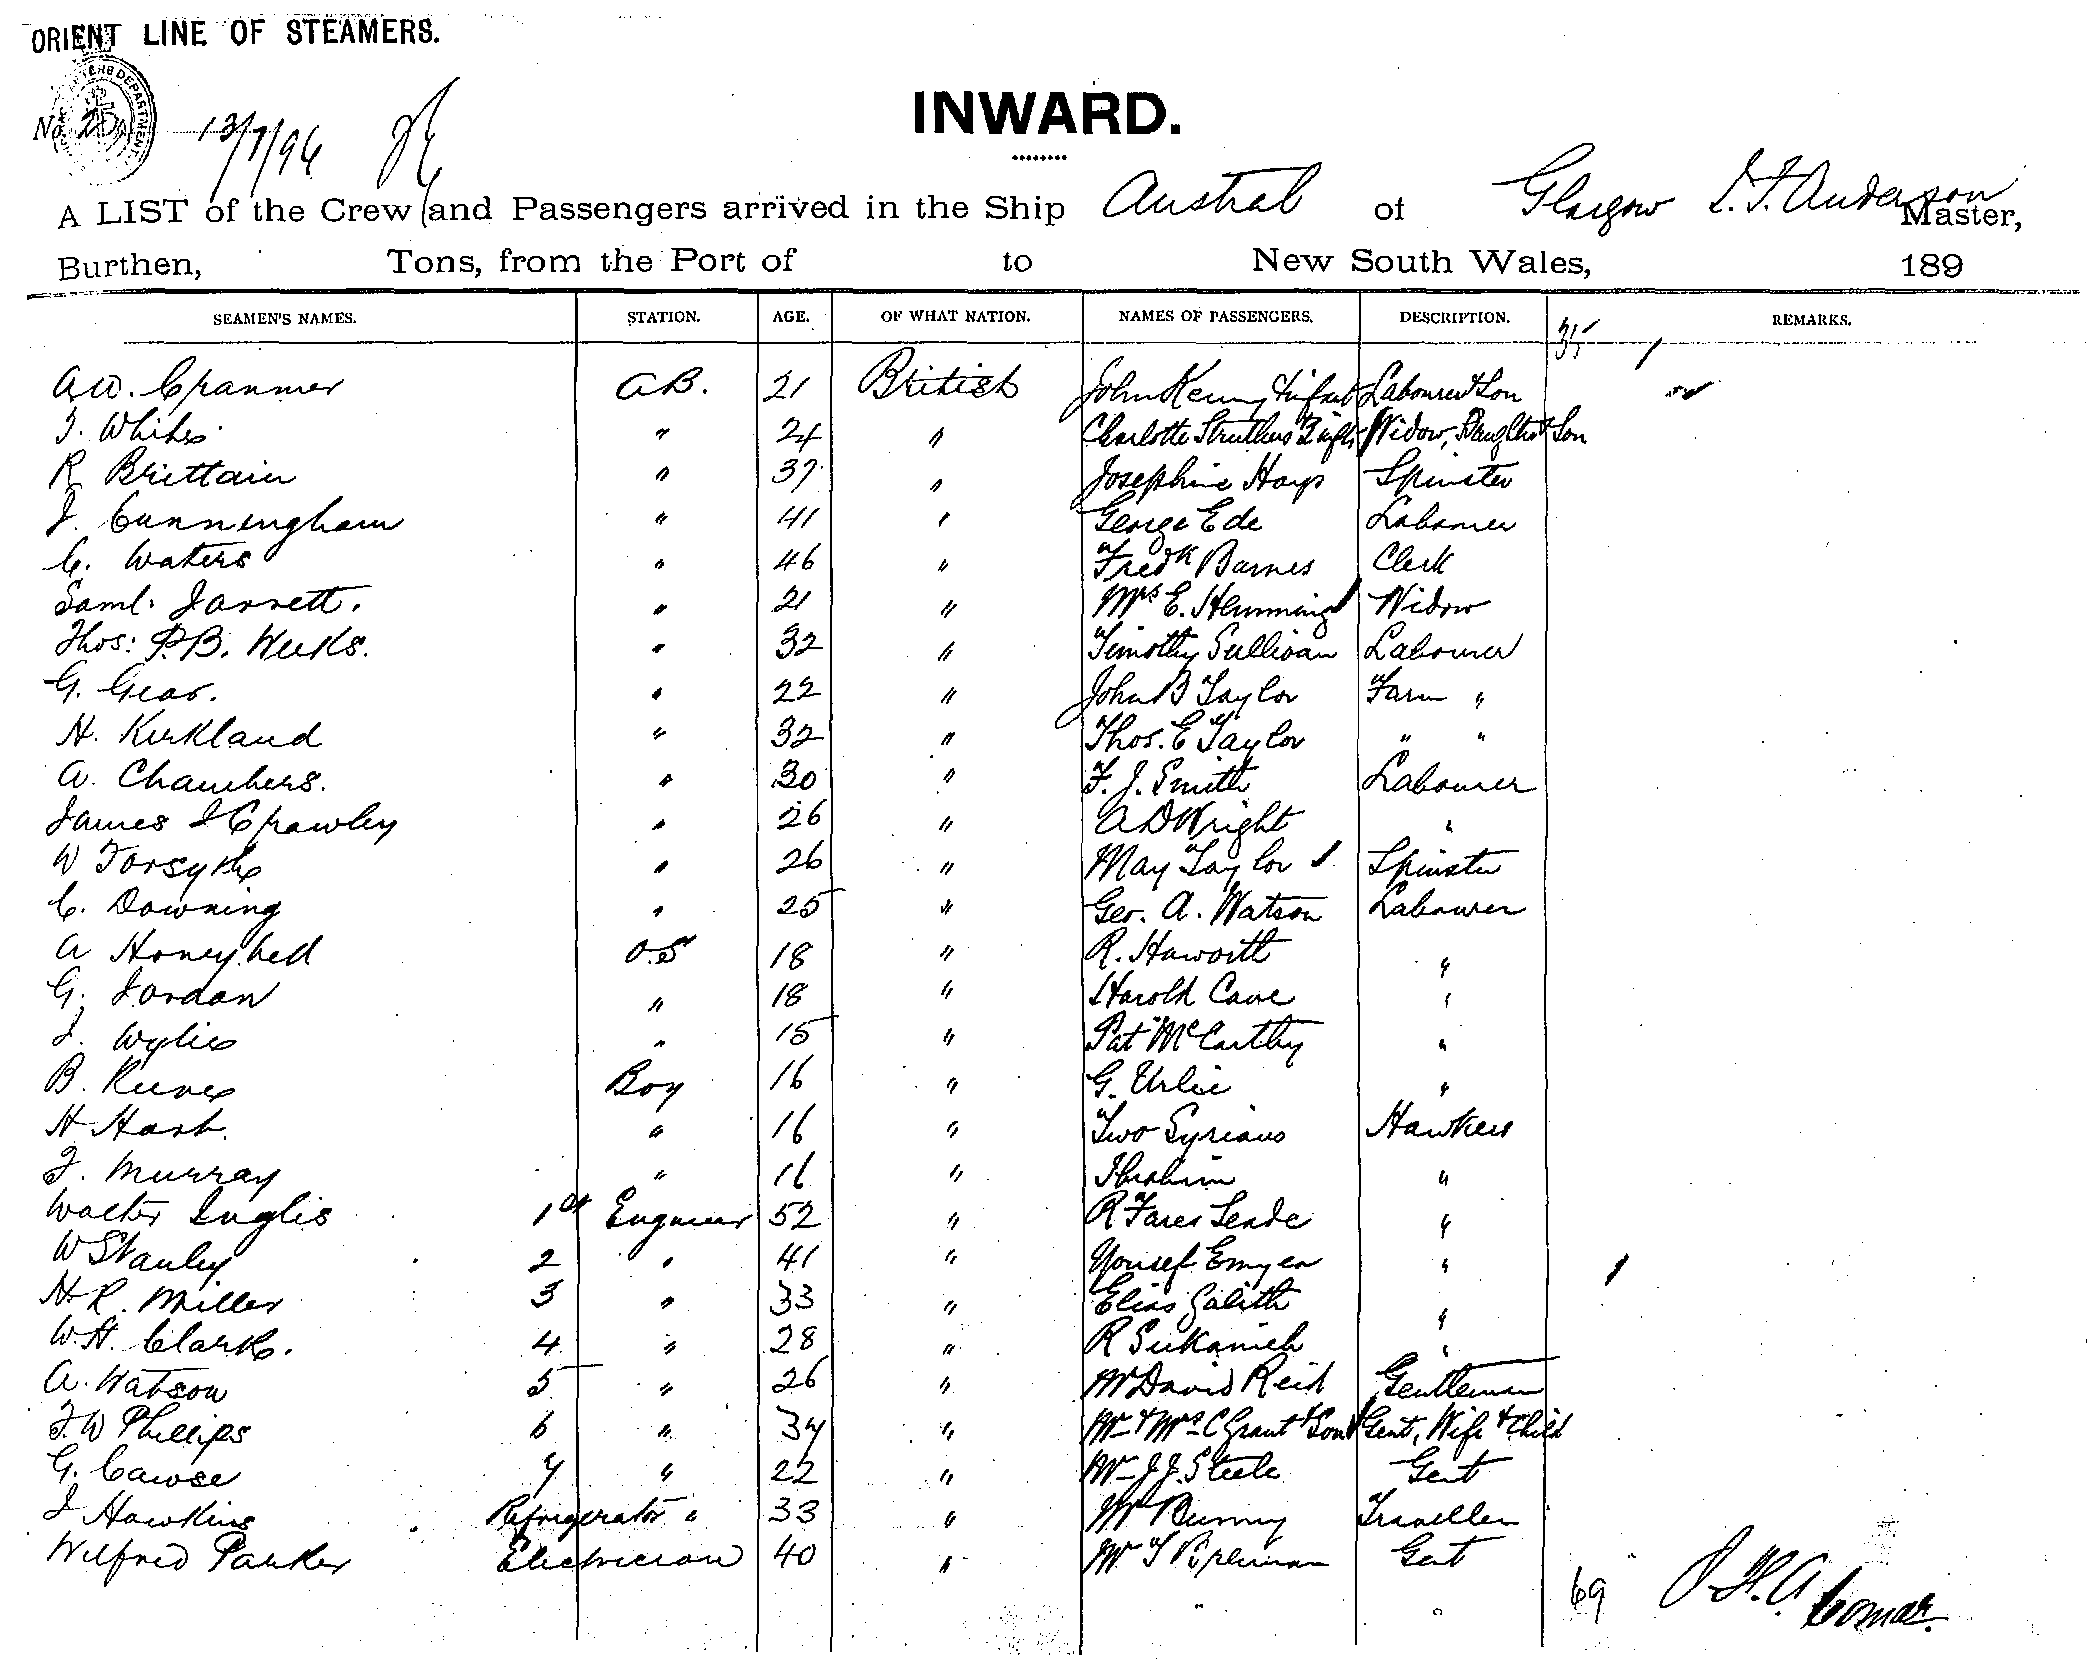 ORIENT LINE OF STEAMERS.
No. 13/7/96
INWARD.
A LIST of the Crew and Passengers arrived in the Ship Austral of Glasgow Anderson Master,
Burthen, Tons, from the Port of to New South Wales, 189
SEAMEN'S NAMES. STATION. AGE. OF WHAT NATION. NAMES OF PASSENGERS. DESCRIPTION. REMARKS.
35
A.W. Cranmer A.B. 21 British John Kenny & infant Labourer & Son
White " 24 " Charlotte Struthers Widow, Daughter & Son
R Brittain " 37 " Josephine Hays Spinster
J. Cunningham " 41 " George Ede Labourer
C. Waters " 46 " Fredk Barnes Clerk
Saml. Jarrett. " 21 " Mrs E. Hemming Widow
Thos: P.B. Weeks. " 32 " Timothy Sullivan Labourer
G. Gear. " 22 " John B Taylor Farm "
H. Kirkland " 32 " Thos. E Taylor " "
A. Chambers. " 30 " F. J. Smith Labourer
James J Crawley " 26 " A D Wright "
W Forsythe " 26 " May Taylor Spinster
C. Downing " 25 " Geo. A. Watson Labourer
A Honeybell O.S 18 " R. Haworth "
G. Jordan " 18 " Harold Cave "
J. Wylie " 15 " Pat McCarthy "
B. Reeves Boy 16 " G. Urlie "
H Hart. " 16 " Two Syrians Hawkers
J. Murray " 16 " Ibrahim "
Walter Inglis 1st Engineer 52 " R Fares "
W Stanley 2 " 41 " Yousef "
H R. Miller 3 " 33 " Elias "
W.H. Clark. 4 " 28 " R "
A. Watson 5 " 26 " Mr David Reid Gentleman
Phillips 6 " 34 " Mr & Mrs C Grant & Son Gent, Wife & Child
G. Cawse 7 " 22 " Mr J J. Steele Gent
J Hawkins Refrigerator " 33 " Mr Bunny Traveller
Wilfred Parker Electrician 40 " Mr Gent
69